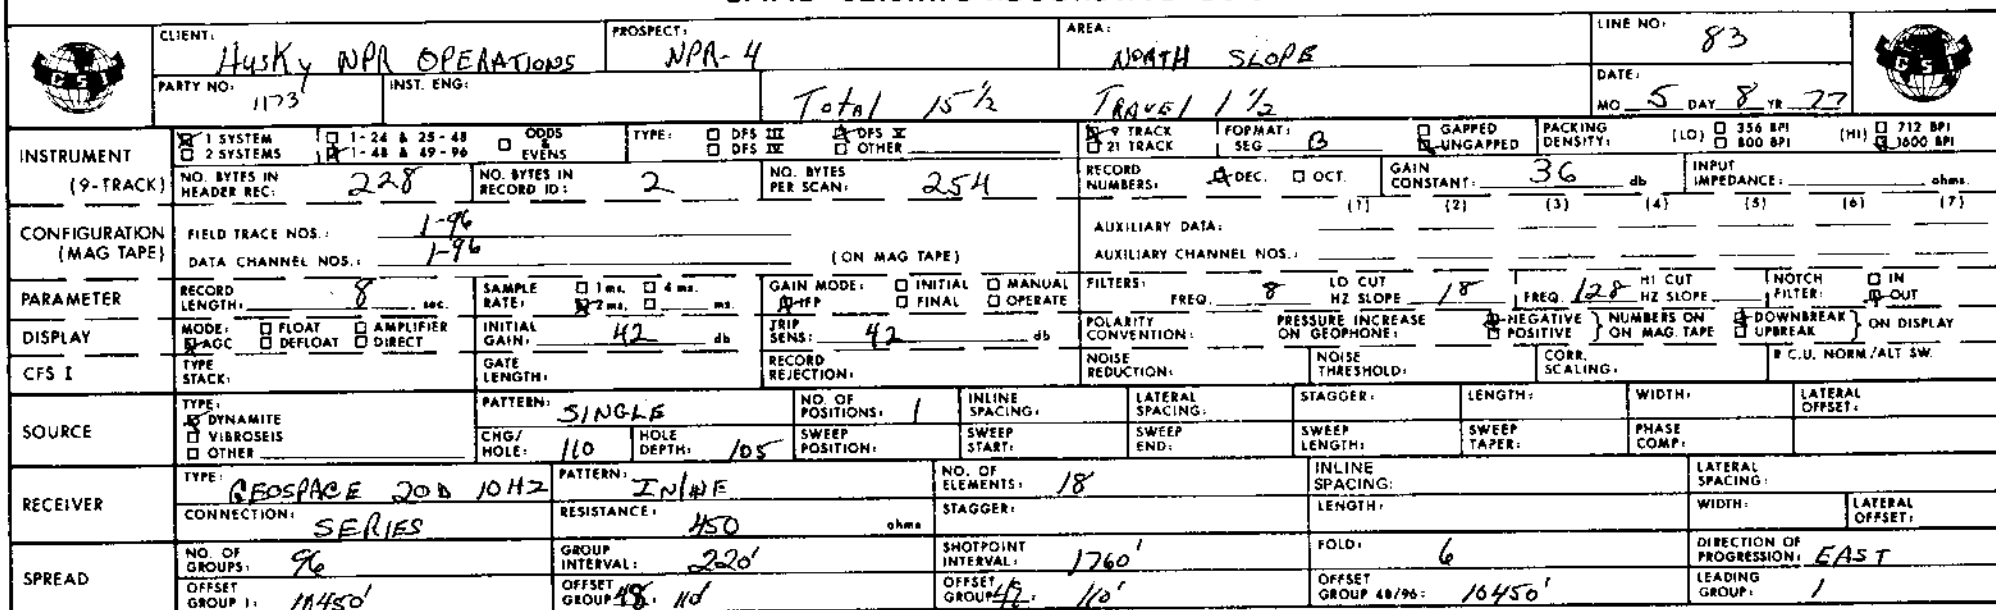 CLIENT: Husky NPR OPERATIONS PROSPECT: NPR-4 AREA: NORTH SLOPE LINE NO: 83
GSI GSI
PARTY NO: 1173 INST. ENG: Total 15 1/2 TRAVEL 1 1/2 DATE: MO 5 DAY 8 YR 77
INSTRUMENT (9-TRACK)
1 SYSTEM 1-24 & 25-48 ODDS & EVENS TYPE: DFS III DFS V 9 TRACK FORMAT: SEG B GAPPED PACKING DENSITY: (LO) 356 BPI (HI) 712 BPI
2 SYSTEMS 1-48 & 49-96 DFS IV OTHER 21 TRACK UNGAPPED 800 BPI 1600 BPI
NO. BYTES IN HEADER REC: 228 NO. BYTES IN RECORD ID: 2 NO. BYTES PER SCAN: 254 RECORD NUMBERS: DEC. OCT. GAIN CONSTANT: 36 db INPUT IMPEDANCE: ohms.
CONFIGURATION (MAG TAPE)
(1) (2) (3) (4) (5) (6) (7)
FIELD TRACE NOS.: 1-96 AUXILIARY DATA:
DATA CHANNEL NOS.: 1-96 (ON MAG TAPE) AUXILIARY CHANNEL NOS.:
PARAMETER RECORD LENGTH: 8 sec. SAMPLE RATE: 1 ms. 4 ms. 2 ms. ms. GAIN MODE: INITIAL MANUAL IFP FINAL OPERATE FILTERS: FREQ. 8 LO CUT HZ SLOPE 18 FREQ. 128 HI CUT HZ SLOPE NOTCH FILTER: IN OUT
DISPLAY MODE: FLOAT AMPLIFIER AGC DEFLOAT DIRECT INITIAL GAIN: 42 db TRIP SENS: 42 db POLARITY CONVENTION: PRESSURE INCREASE ON GEOPHONE: NEGATIVE POSITIVE } NUMBERS ON ON MAG. TAPE DOWNBREAK UPBREAK } ON DISPLAY
CFS I TYPE STACK: GATE LENGTH: RECORD REJECTION: NOISE REDUCTION: NOISE THRESHOLD: CORR. SCALING: R C.U. NORM/ALT SW.
SOURCE TYPE: DYNAMITE VIBROSEIS OTHER PATTERN: SINGLE NO. OF POSITIONS: 1 INLINE SPACING: LATERAL SPACING: STAGGER: LENGTH: WIDTH: LATERAL OFFSET:
CHG/HOLE: 110 HOLE DEPTH: 105 SWEEP POSITION: SWEEP START: SWEEP END: SWEEP LENGTH: SWEEP TAPER: PHASE COMP:
RECEIVER TYPE: GEOSPACE 20D 10HZ PATTERN: INLINE NO. OF ELEMENTS: 18 INLINE SPACING: LATERAL SPACING:
CONNECTION: SERIES RESISTANCE: 450 ohms STAGGER: LENGTH: WIDTH: LATERAL OFFSET:
SPREAD NO. OF GROUPS: 96 GROUP INTERVAL: 220' SHOTPOINT INTERVAL: 1760' FOLD: 6 DIRECTION OF PROGRESSION: EAST
OFFSET GROUP 1: 10450' OFFSET GROUP 48: 110' OFFSET GROUP: 110' OFFSET GROUP 48/96: 10450' LEADING GROUP: 1